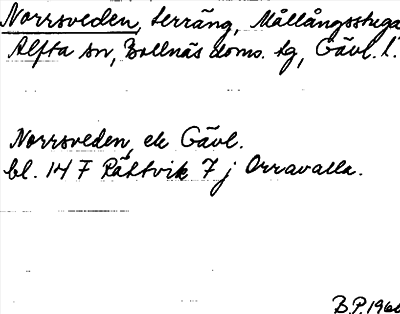 Norrsveden, terräng, Mållångsstuga
Alfta sn, Bollnäs doms. tg, Gävl. l.
Norrsveden, ek Gävl.
bl. 14 F Rättvik 7 j Orravalla.
B.P. 1966